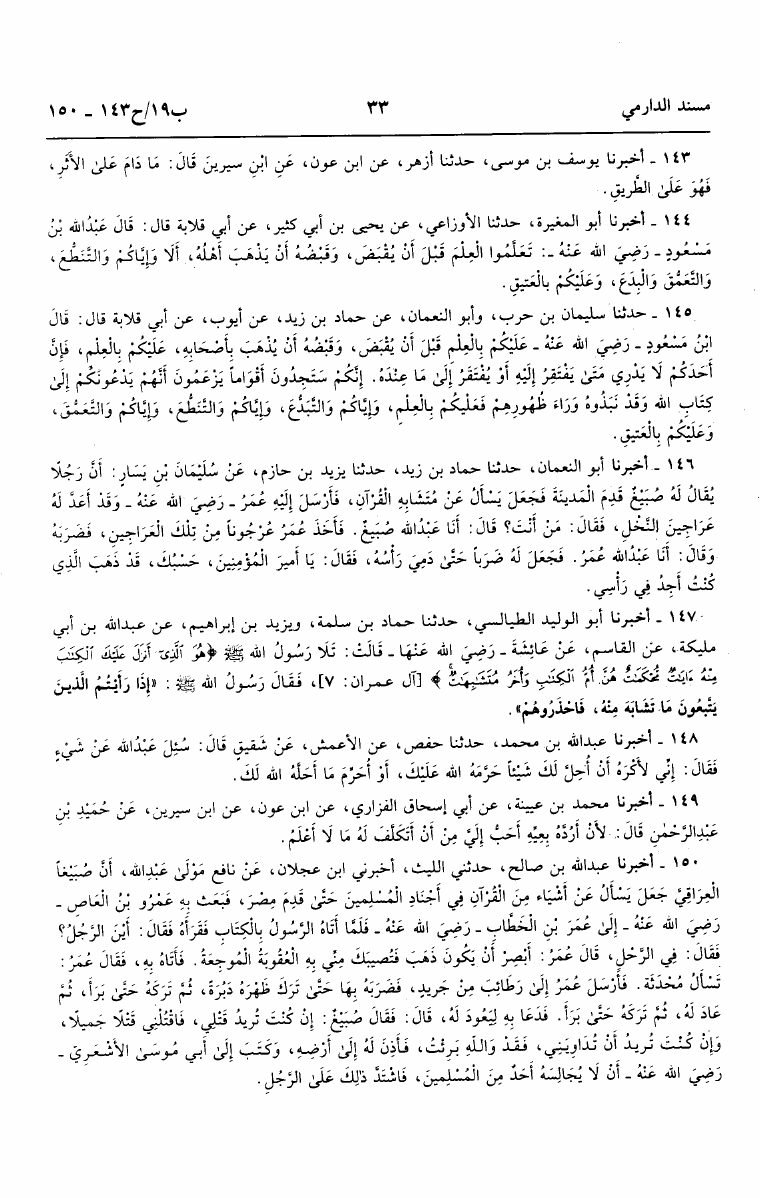 مسند الدارمي ٣٣ ب١٩/ح١٤٣ ـ ١٥٠
١٤٣ ـ أخبرنا يوسف بن موسى، حدثنا أزهر، عن ابن عون، عَنِ ابْنِ سيرينَ قَالَ: مَا دَامَ عَلىٰ الأَثَرِ،
فَهُوَ عَلَىٰ الطَّرِيقِ.
١٤٤ ـ أخبرنا أبو المغيرة، حدثنا الأوزاعي، عن يحيى بن أبي كثير، عن أبي قلابة قال: قَالَ عَبْدُالله بْنُ
مَسْعُودٍ ـ رَضِيَ الله عَنْهُ ـ: تَعَلَّمُوا الْعِلْمَ قَبْلَ أَنْ يُقْبَضَ، وَقَبْضُهُ أَنْ يَذْهَبَ أَهْلُهُ، أَلَا وَإِيَّاكُمْ وَالتَّنَطُّعَ،
وَالتَّعَمُّقَ وَالْبِدَعَ، وَعَلَيْكُمْ بِالْعَتِيقِ.
١٤٥ ـ حدثنا سليمان بن حرب، وأبو النعمان، عن حماد بن زيد، عن أيوب، عن أبي قلابة قال: قَالَ
ابْنُ مَسْعُودٍ ـ رَضِيَ الله عَنْهُ ـ عَلَيْكُمْ بِالْعِلْمِ قَبْلَ أَنْ يُقْبَضَ، وَقَبْضُهُ أَنْ يُذْهَبَ بِأَصْحَابِهِ، عَلَيْكُمْ بِالْعِلْمِ، فَإِنَّ
أَحَدَكُمْ لَا يَدْرِي مَتَىٰ يَفْتَقِرُ إِلَيْهِ أَوْ يُفْتَقَرُ إِلَىٰ مَا عِنْدَهُ. إِنَّكُمْ سَتَجِدُونَ أَقْوَاماً يَزْعَمُونَ أَنَّهُمْ يَدْعُونَكُمْ إِلَىٰ
كِتَابِ الله وَقَدْ نَبَذُوهُ وَرَاءَ ظُهُورِهِمْ فَعَلَيْكُمْ بِالْعِلْمِ، وَإِيَّاكُمْ وَالتَّبَدُّعَ، وَإِيَّاكُمْ وَالتَّنَطُّعَ، وَإِيَّاكُمْ وَالتَّعَمُّقَ،
وَعَلَيْكُمْ بِالْعَتِيقِ.
١٤٦ ـ أخبرنا أبو النعمان، حدثنا حماد بن زيد، حدثنا يزيد بن حازم، عَنْ سُلَيْمَانَ بْنِ يَسَارٍ: أَنَّ رَجُلًا
يُقَالُ لَهُ صُبَيْغٌ قَدِمَ الْمَدِينَةَ فَجَعَلَ يَسْأَلُ عَنْ مُتَشَابِهِ الْقُرْآنِ، فَأَرْسَلَ إِلَيْهِ عُمَرُ ـ رَضِيَ الله عَنْهُ ـ وَقَدْ أَعَدَّ لَهُ
عَرَاجِينَ النَّخْلِ، فَقَالَ: مَنْ أَنْتَ؟ قَالَ: أَنَا عَبْدُالله صُبَيْغٌ. فَأَخَذَ عُمَرُ عُرْجُوناً مِنْ تِلْكَ الْعَرَاجِينِ، فَضَرَبَهُ
وَقَالَ: أَنَا عَبْدُالله عُمَرُ. فَجَعَلَ لَهُ ضَرْباً حَتَّىٰ دَمِيَ رَأْسُهُ، فَقَالَ: يَا أَمِيرَ الْمُؤْمِنِينَ، حَسْبُكَ، قَدْ ذَهَبَ الَّذِي
كُنْتُ أَجِدُ فِي رَأْسِي.
١٤٧ ـ أخبرنا أبو الوليد الطيالسي، حدثنا حماد بن سلمة، ويزيد بن إبراهيم، عن عبدالله بن أبي
مليكة، عن القاسم، عَنْ عَائِشَةَ ـ رَضِيَ الله عَنْهَا ـ قَالَتْ: تَلَا رَسُولُ الله ﷺ ﴿هُوَ ٱلَّذِىٓ أَنزَلَ عَلَيْكَ ٱلْكِتَٰبَ
مِنْهُ ءَايَٰتٌ مُّحْكَمَٰتٌ هُنَّ أُمُّ ٱلْكِتَٰبِ وَأُخَرُ مُتَشَٰبِهَٰتٌ﴾ [آل عمران: ٧]، فَقَالَ رَسُولُ الله ﷺ: «إِذَا رَأَيْتُمُ الَّذِينَ
يَتَّبِعُونَ مَا تَشَابَهَ مِنْهُ، فَاحْذَرُوهُمْ».
١٤٨ ـ أخبرنا عبدالله بن محمد، حدثنا حفص، عن الأعمش، عَنْ شَقيقٍ قَالَ: سُئِلَ عَبْدُالله عَنْ شَيْءٍ
فَقَالَ: إِنِّي لأَكْرَهُ أَنْ أُحِلَّ لَكَ شَيْئاً حَرَّمَهُ الله عَلَيْكَ، أَوْ أُحَرِّمَ مَا أَحَلَّهُ الله لَكَ.
١٤٩ ـ أخبرنا محمد بن عيينة، عن أبي إسحاق الفزاري، عن ابن عون، عن ابن سيرين، عَنْ حُمَيْدِ بْنِ
عَبْدِالرَّحْمٰنِ قَالَ: لأَنْ أَرُدَّهُ بِعِيِّهِ أَحَبُّ إِلَيَّ مِنْ أَنْ أَتَكَلَّفَ لَهُ مَا لَا أَعْلَمُ.
١٥٠ ـ أخبرنا عبدالله بن صالح، حدثني الليث، أخبرني ابن عجلان، عَنْ نافع مَوْلَىٰ عَبْدِالله، أَنَّ صُبَيْغاً
الْعِرَاقِيَّ جَعَلَ يَسْأَلُ عَنْ أَشْيَاء مِنَ الْقُرْآنِ فِي أَجْنَادِ الْمُسْلِمِينَ حَتَّىٰ قَدِمَ مِصْرَ، فَبَعَثَ بِهِ عَمْرُو بْنُ الْعَاصِ ـ
رَضِيَ الله عَنْهُ ـ إِلَىٰ عُمَرَ بْنِ الْخَطَّابِ ـ رَضِيَ الله عَنْهُ ـ فَلَمَّا أَتَاهُ الرَّسُولُ بِالْكِتَابِ فَقَرَأَهُ فَقَالَ: أَيْنَ الرَّجُلُ؟
فَقَالَ: فِي الرَّحْلِ، قَالَ عُمَرُ: أَبْصِرْ أَنْ يَكُونَ ذَهَبَ فَتُصِيبَكَ مِنِّي بِهِ الْعُقُوبَةُ الْمُوجِعَةُ. فَأَتَاهُ بِهِ، فَقَالَ عُمَرُ:
تَسْأَلُ مُحْدَثَةً. فَأَرْسَلَ عُمَرُ إِلَىٰ رَطَائِبَ مِنْ جَرِيدٍ، فَضَرَبَهُ بِهَا حَتَّىٰ تَرَكَ ظَهْرَهُ دَبْرَةً، ثُمَّ تَرَكَهُ حَتَّىٰ بَرَأَ، ثُمَّ
عَادَ لَهُ، ثُمَّ تَرَكَهُ حَتَّىٰ بَرَأَ. فَدَعَا بِهِ لِيَعُودَ لَهُ، قَالَ: فَقَالَ صُبَيْغٌ: إِنْ كُنْتَ تُرِيدُ قَتْلِي، فَاقْتُلْنِي قَتْلًا جَمِيلًا،
وَإِنْ كُنْتَ تُرِيدُ أَنْ تُدَاوِيَنِي، فَقَدْ وَاللهِ بَرِئْتُ، فَأَذِنَ لَهُ إِلَىٰ أَرْضِهِ، وَكَتَبَ إِلَىٰ أَبِي مُوسَىٰ الأَشْعَرِيِّ ـ
رَضِيَ الله عَنْهُ ـ أَنْ لَا يُجَالِسَهُ أَحَدٌ مِنَ الْمُسْلِمِينَ، فَاشْتَدَّ ذٰلِكَ عَلَىٰ الرَّجُلِ.